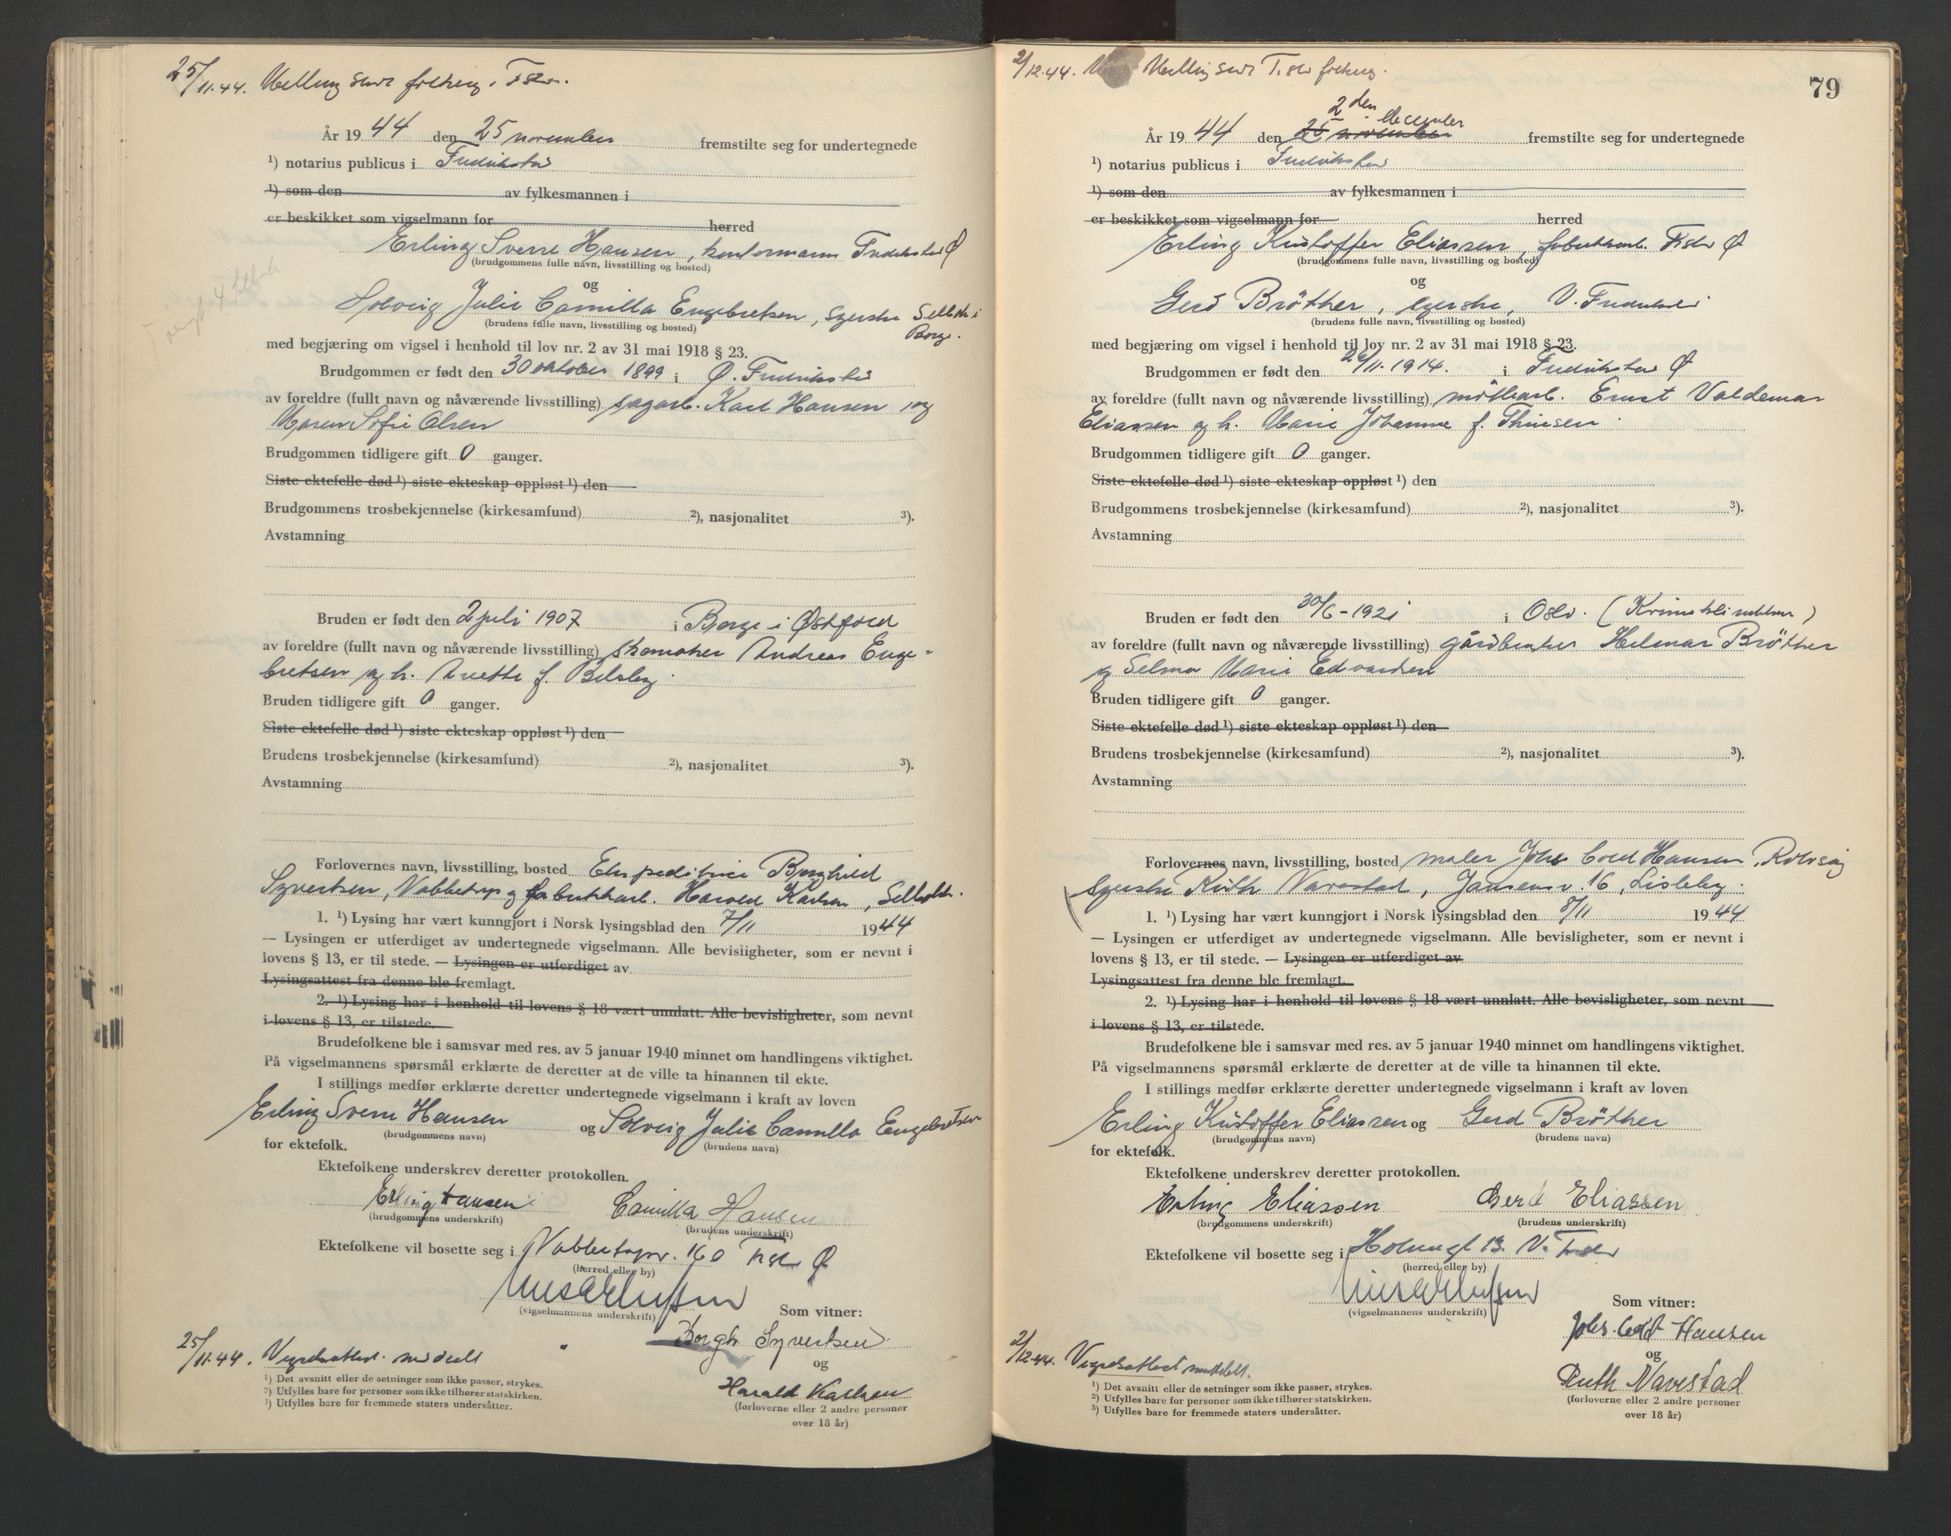 25/11.44. Melling sendt folkereg. i F.stad.
År 1944 den 25 november fremstilte seg for undertegnede
¹) notarius publicus i Fredrikstad
¹) som den av fylkesmannen i
er beskikket som vigselmann for herred
Erling Sverre Hansen, kontormann Fredrikstad Ø
(brudgommens fulle navn, livsstilling og bosted)
og
Solveig Julie Camilla Engebretsen, syerske Sellebk i
Borge.
(brudens fulle navn, livsstilling og bosted)
med begjæring om vigsel i henhold til lov nr. 2 av 31 mai 1918 § 23.
Brudgommen er født den 30 oktober 1899 i Ø. Fredrikstad
av foreldre (fullt navn og nåværende livsstilling) sagarb. Karl Hansen og
Maren Sofie Olsen
Brudgommen tidligere gift 0 ganger.
Siste ektefelle død ¹) siste ekteskap oppløst ¹) den
Brudgommens trosbekjennelse (kirkesamfund) ²), nasjonalitet ³).
Avstamning
Bruden er født den 2 juli 1907 i Borge i Østfold
av foreldre (fullt navn og nåværende livsstilling) skomaker Andreas Enge-
bretsen og h. Anette f. Belsby.
Bruden tidligere gift 0 ganger.
Siste ektefelle død ¹) siste ekteskap oppløst ¹) den
Brudens trosbekjennelse (kirkesamfund) ²), nasjonalitet ³).
Avstamning
Forlovernes navn, livsstilling, bosted Ekspeditrice Borghild
Syvertsen, Nabbetorp og fabrikkarb. Harald Karlsen, Sellebk.
1. ¹) Lysing har vært kunngjort i Norsk lysingsblad den 7/11 1944
— Lysingen er utferdiget av undertegnede vigselmann. Alle bevisligheter, som er nevnt i
lovens § 13, er til stede. — Lysingen er utferdiget av
Lysingsattest fra denne ble fremlagt.
2. ¹) Lysing har i henhold til lovens § 18 vært unnlatt. Alle bevisligheter, som nevnt
i lovens § 13, er tilstede.
Brudefolkene ble i samsvar med res. av 5 januar 1940 minnet om handlingens viktighet.
På vigselmannens spørsmål erklærte de deretter at de ville ta hinannen til ekte.
I stillings medfør erklærte deretter undertegnede vigselmann i kraft av loven
Erling Sverre Hansen og Solveig Julie Camilla Engebretsen
(brudgommens navn) (brudens navn)
for ektefolk.
Ektefolkene underskrev deretter protokollen.
Erling Hansen Camilla Hansen
(brudgommens underskrift) (brudens underskrift)
Ektefolkene vil bosette seg i Nabbetorpv. 160 F.stad Ø
(herred eller by)
(vigselmannens underskrift) Som vitner:
Borgh. Syvertsen
og
25/11.44. Vigselsattest meddelt
Harald Karlsen
(forloverne eller 2 andre personer
over 18 år)
¹) Det avsnitt eller de setninger som ikke passer, strykes.
²) Utfylles bare for personer som ikke tilhører statskirken.
³) Utfylles bare for fremmede staters undersåtter.
79
2/12.44. Melling sendt F.stad folkereg.
2 den december
År 1944 den 25 november fremstilte seg for undertegnede
¹) notarius publicus i Fredrikstad
¹) som den av fylkesmannen i
er beskikket som vigselmann for herred
Erling Kristoffer Eliassen, fabrikkarb. F.stad Ø
(brudgommens fulle navn, livsstilling og bosted)
og
Gerd Bröther, syerske, V. Fredrikstad
(brudens fulle navn, livsstilling og bosted)
med begjæring om vigsel i henhold til lov nr. 2 av 31 mai 1918 § 23.
Brudgommen er født den 26/11.1914. i Fredrikstad Ø
av foreldre (fullt navn og nåværende livsstilling) møllearb. Ernst Valdemar
Eliassen og h. Marie Johanne f. Thiesen
Brudgommen tidligere gift 0 ganger.
Siste ektefelle død ¹) siste ekteskap oppløst ¹) den
Brudgommens trosbekjennelse (kirkesamfund) ²), nasjonalitet ³).
Avstamning
Bruden er født den 30/6-1921 i Oslo. (Kvinneklinikken)
av foreldre (fullt navn og nåværende livsstilling) gårdbruker Helmar Bröther
og Selma Marie Edvardsen
Bruden tidligere gift 0 ganger.
Siste ektefelle død ¹) siste ekteskap oppløst ¹) den
Brudens trosbekjennelse (kirkesamfund) ²), nasjonalitet ³).
Avstamning
Forlovernes navn, livsstilling, bosted maler Johs Cold Hansen, Rolvsøy
Syerske Ruth Navestad, Jansensv. 16, Lisleby.
1. ¹) Lysing har vært kunngjort i Norsk lysingsblad den 8/11 1944
— Lysingen er utferdiget av undertegnede vigselmann. Alle bevisligheter, som er nevnt i
lovens § 13, er til stede. — Lysingen er utferdiget av
Lysingsattest fra denne ble fremlagt.
2. ¹) Lysing har i henhold til lovens § 18 vært unnlatt. Alle bevisligheter, som nevnt
i lovens § 13, er tilstede.
Brudefolkene ble i samsvar med res. av 5 januar 1940 minnet om handlingens viktighet.
På vigselmannens spørsmål erklærte de deretter at de ville ta hinannen til ekte.
I stillings medfør erklærte deretter undertegnede vigselmann i kraft av loven
Erling Kristoffer Eliassen og Gerd Bröther
(brudgommens navn) (brudens navn)
for ektefolk.
Ektefolkene underskrev deretter protokollen.
Erling Eliassen Gerd Eliassen
(brudgommens underskrift) (brudens underskrift)
Ektefolkene vil bosette seg i Holmegt 13. V. F.stad
(herred eller by)
(vigselmannens underskrift) Som vitner:
Johs. Cold Hansen
og
2/12.44. Vigselsattest meddelt.
Ruth Navestad
(forloverne eller 2 andre personer
over 18 år)
¹) Det avsnitt eller de setninger som ikke passer, strykes.
²) Utfylles bare for personer som ikke tilhører statskirken.
³) Utfylles bare for fremmede staters undersåtter.